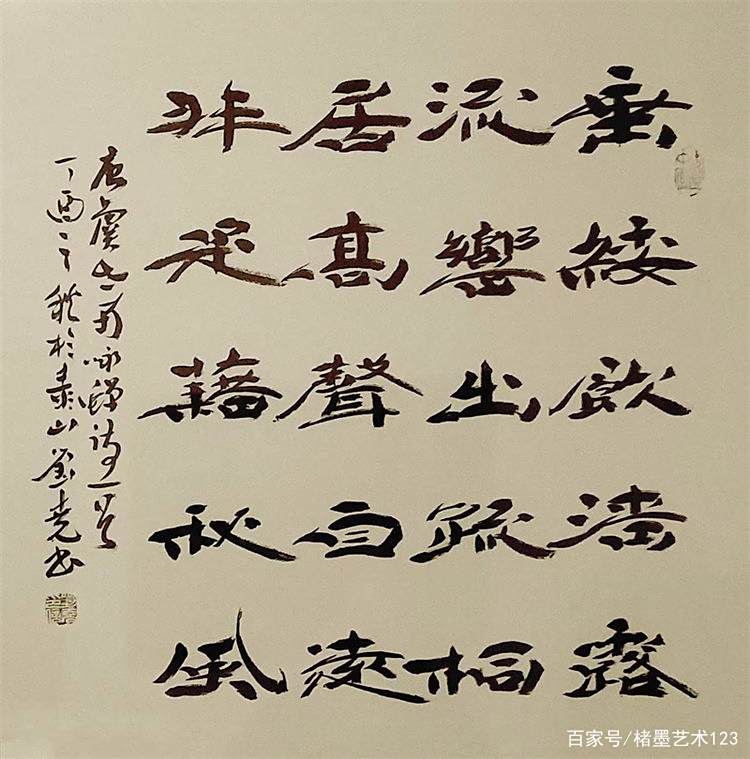 垂緌飲清露
流響出疏桐
居高聲自遠
非是藉秋風
唐虞世南咏蟬詩一首
丁酉之秋於泰山書
百家号/楮墨艺术123